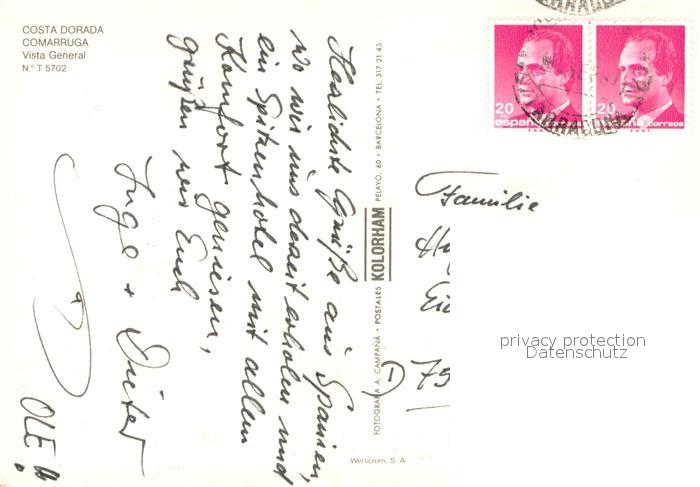 COSTA DORADA
COMARRUGA
Vista General
N.° T 5702
Herzlichste Grüße aus Spanien,
wo wir uns derzeit erholen und
ein Spitzenhotel mit allem
Komfort genießen,
grüßen wir Euch
Inge + Dieter
OLE!!
FOTOGRAFIA A. CAMPAÑÁ • POSTALES KOLORHAM PELAYO, 60 • BARCELONA • TEL. 317 21 43
Werticrom, S. A.
20
españa correos
F.N.M.T.
20
españa correos
F.N.M.T.
TARRAGONA
Familie
D 75
privacy protection
Datenschutz